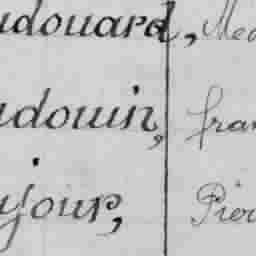 udouard, Med
udouin, fran
yjour, Pier